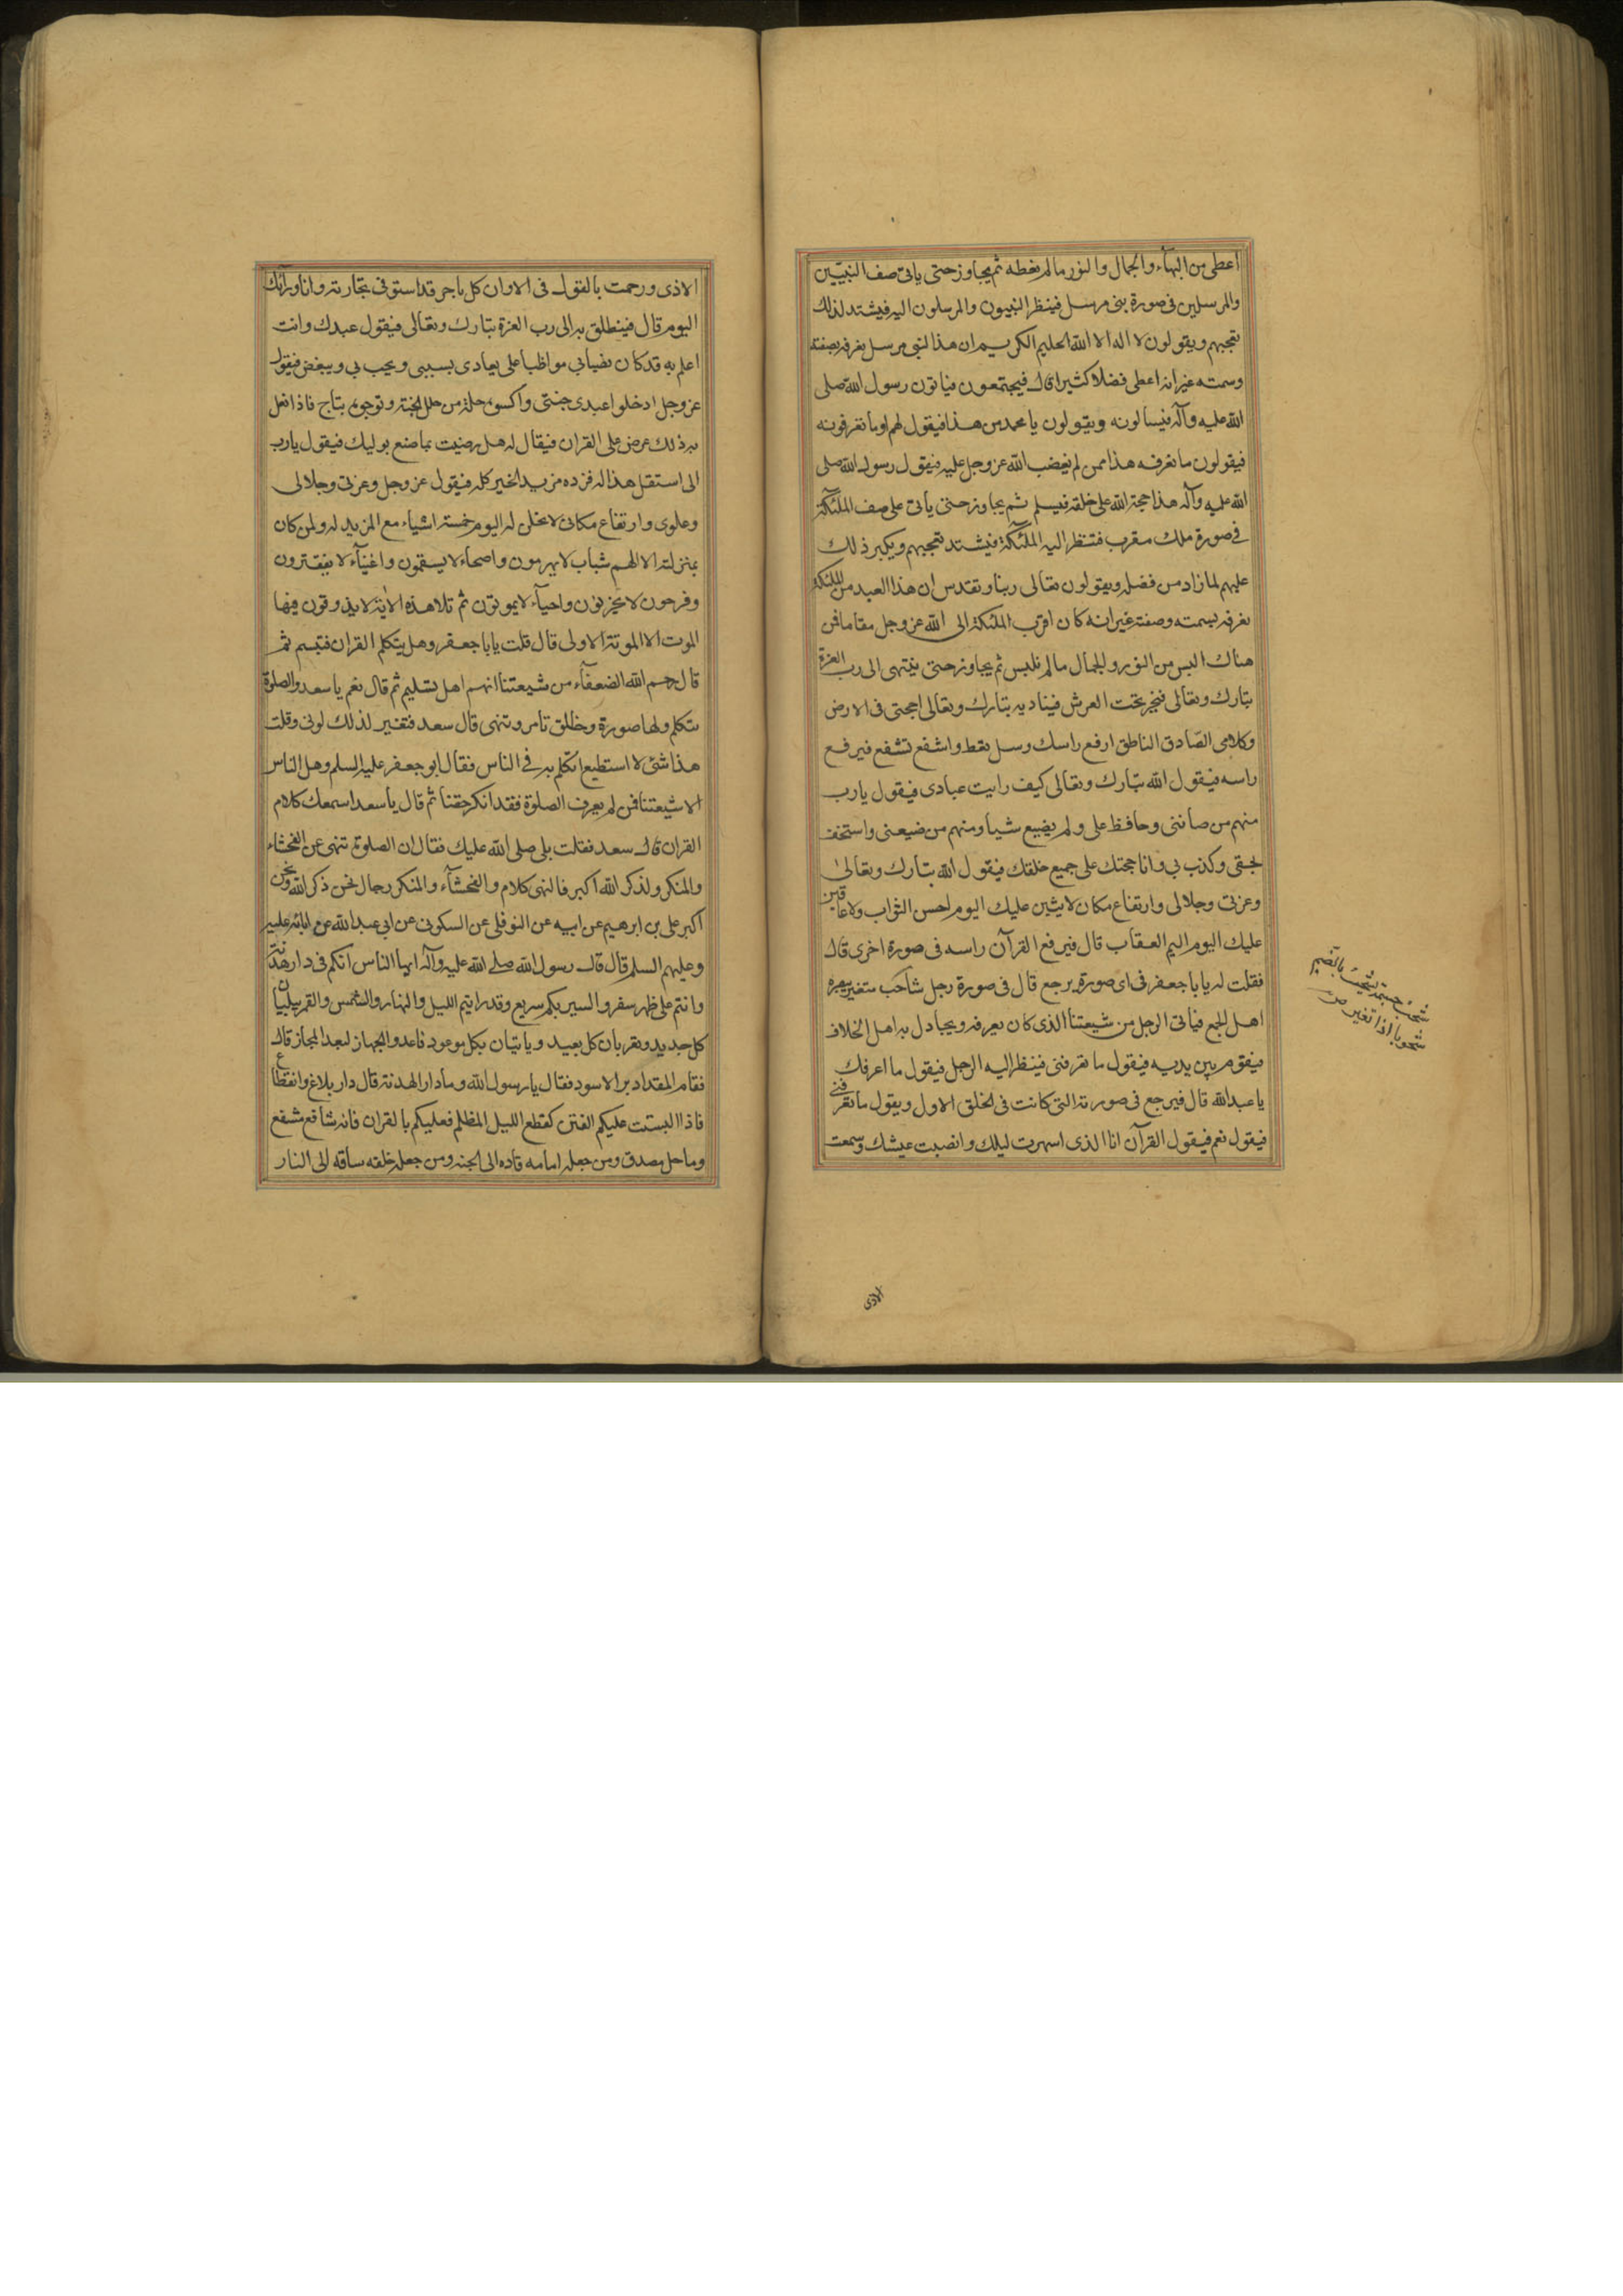 اعطى من البهآء والجمال والنور ما لم نعطه ثم يجاوز حتى ياتى صف النبيّين
والمرسلين فى صورة نبى مرسل فينظر النبيون والمرسلون اليه فيشتد لذلك
تعجبهم ويقولون لا اله الا الله الحليم الكريم ان هذا لنبى مرسل نعرفه بصفته
وسمته غير انه اعطى فضلا كثيرا قال فيجتمعون فياتون رسول الله صلى
الله عليه وآله فيسالونه ويقولون يا محمد من هذا فيقول لهم او ما تعرفونه
فيقولون ما نعرفه هذا ممن لم يغضب الله عز وجل عليه فيقول رسول الله صلى
الله عليه وآله هذا حجة الله على خلقه فيسلم ثم يجاوز حتى يأتى على صف الملئكة
فى صورة ملك مقرب فتنظر اليه الملئكة فيشتد تعجبهم ويكبر ذلك
عليهم لما زاد من فضله ويقولون تعالى ربنا وتقدس ان هذا العبد من الملئكة
نعرفه بسمته وصفته غير انه كان اقرب الملئكة الى الله عز وجل مقاما فمن
هناك البس من النور والجمال ما لم نلبس ثم يجاوز حتى ينتهى الى رب العزة
تبارك وتعالى فيخر تحت العرش فيناديه تبارك وتعالى يا حجتى فى الارض
وكلامى الصّادق الناطق ارفع راسك وسل تعط واشفع تشفع فيرفع
راسه فيقول الله تبارك وتعالى كيف رايت عبادى فيقول يا رب
منهم من صاننى وحافظ على ولم يضيع شيأ ومنهم من ضيعنى واستخف
بحقى وكذب بى وانا حجتك على جميع خلقك فيقول الله تبارك وتعالى
وعزتى وجلالى وارتفاع مكانى لاثيبن عليك اليوم احسن الثواب ولاعاقبن
عليك اليوم اليم العقاب قال فيرفع القرآن راسه فى صورة اخرى قال
فقلت له يا با جعفر فى اى صورة يرجع قال فى صورة رجل شاحب متغير يبصره
اهل الجمع فياتى الرجل من شيعتنا الذى كان يعرفه ويجادل به اهل الخلاف
فيقوم بين يديه فيقول ما تعرفنى فينظر اليه الرجل فيقول ما اعرفك
يا عبد الله قال فيرجع فى صورته التى كانت فى الخلق الاول ويقول ما تعرفنى
فيقول نعم فيقول القرآن انا الذى اسهرت ليلك وانصبت عيشك وسمعت
شحب جسمه يشحب بالضم
شحوبا اذا تغير ص
الاذى
الاذى ورجمت بالقول فى الا وان كل تاجر قد استوفى تجارته وانا ورآئك
اليوم قال فينطلق به الى رب العزة تبارك وتعالى فيقول عبدك وانت
اعلم به قد كان نصبا بى مواظبا على يعادى بسببى ويحب بى ويبغض فيقول
عز وجل ادخلوا عبدى جنتى واكسوه حلة من حلل الجنة وتوجوه بتاج فاذا فعل
به ذلك عرض على القران فيقال له هل رضيت بما صنع بوليك فيقول يا رب
انى استقل هذا له فزده مزيد الخير كله فيقول عز وجل وعزتى وجلالى
وعلوى وارتفاع مكانى لانحلن له اليوم خمسة اشياء مع المزيد له ولمن كان
بمنزلته الا انهم شباب لا يهرمون واصحاء لا يسقمون واغنيآء لا يفتقرون
وفرحون لا يحزنون واحيآء لا يموتون ثم تلا هذه الاية لا يذوقون فيها
الموت الا الموتة الاولى قال قلت يا با جعفر وهل يتكلم القران فتبسم ثم
قال رحم الله الضعفآء من شيعتنا انهم اهل تسليم ثم قال نعم يا سعد والصلوة
تتكلم ولها صورة وخلق تامر وتنهى قال سعد فتغير لذلك لونى وقلت
هذا شئ لا استطيع اتكلم به فى الناس فقال ابو جعفر عليه السلم وهل الناس
الا شيعتنا فمن لم يعرف الصلوة فقد انكر حقنا ثم قال يا سعد اسمعك كلام
القران قال سعد فقلت بلى صلى الله عليك فقال ان الصلوة تنهى عن الفحشاء
والمنكر ولذكر الله اكبر فالنهى كلام والفحشآء والمنكر رجال نحن ذكر الله ونحن
اكبر على بن ابرهيم عن ابيه عن النوفلى عن السكونى عن ابى عبد الله عن ابائه عليه
وعليهم السلم قال قال رسول الله صلى الله عليه وآله ايها الناس انكم فى دار هدنة
وانتم على ظهر سفر والسير بكم سريع وقد رايتم الليل والنهار والشمس والقمر يبليان
كل جديد ويقربان كل بعيد وياتيان بكل موعود فاعدوا الجهاز لبعد المجاز قال
فقام المقداد بن الاسود فقال يا رسول الله وما دار الهدنة قال دار بلاغ وانقطاع
فاذا التبست عليكم الفتن كقطع الليل المظلم فعليكم بالقران فانه شافع مشفع
وماحل مصدق ومن جعله امامه قاده الى الجنه ومن جعله خلفه ساقه الى النار